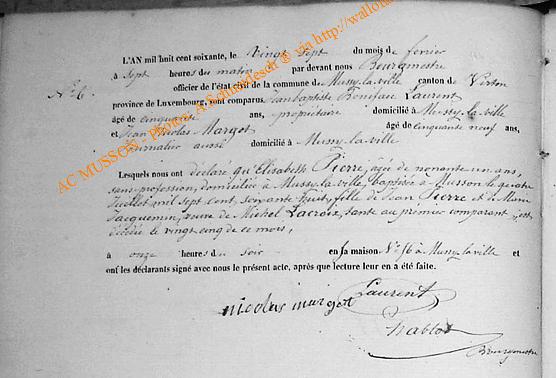 L'AN mil huit cent soixante, le vingt sept du mois de fevrier
N° 6. à sept heures des matin par devant nous Bourgmestre
officier de l'état civil de la commune de Mussy-la-ville canton de Virton
province de Luxembourg, sont comparus Jeanbaptiste Boniface Laurent
âgé de cinquante ans, propriétaire domicilié à Mussy-la-ville
et Jean Nicolas Margot âgé de cinquante neuf ans,
journalier aussi domicilié à Mussy-la-ville
Lesquels nous ont déclaré qu'Elisabeth Pierre, âgée de nonante un ans,
sans profession, domiciliée à Mussy-la-ville, baptisée à Musson le quatre
Juillet mil sept cent, soixante huit, fille de Jean Pierre et de Marie
Jacquemin, veuve de Michel Lacroix, tante au premier comparant, est
décédée le vingt cinq de ce mois,
à onze heures du soir en sa maison N° 56 à Mussy-la-ville et
ont les déclarants signé avec nous le présent acte, après que lecture leur en a été faite.
nicolas margot Laurent
Bourgmestre
AC MUSSON - Photos: A. Schmidesch ® via http://wallo